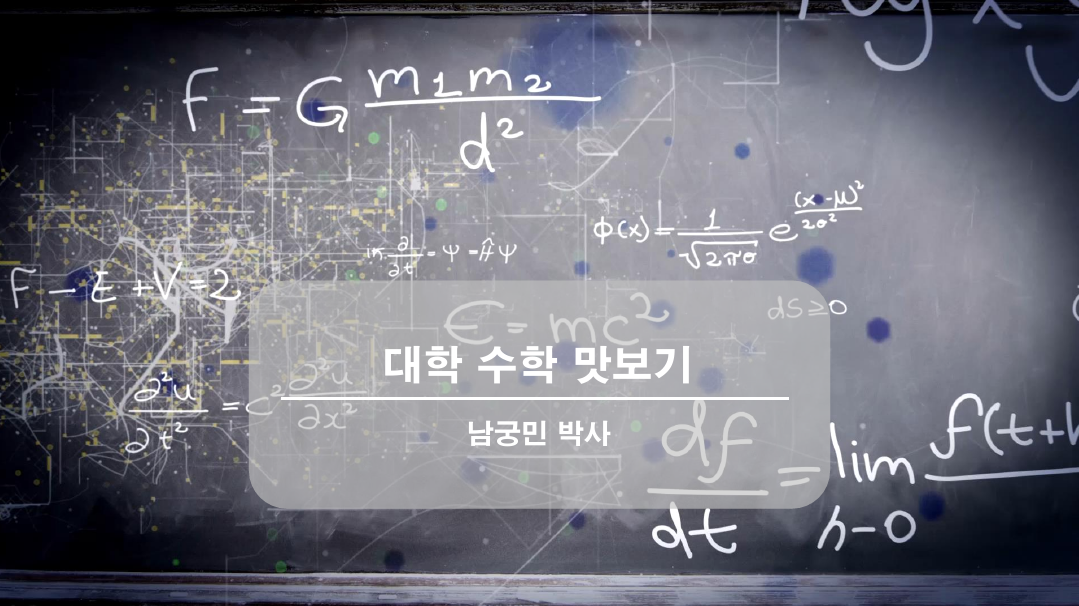 F = G m₁m₂ / d²
ϕ(x) = 1 / √2πσ e^((x-μ)² / 2σ²)
iħ ∂/∂t - Ψ = Ĥ Ψ
F - E + V = 2
E = mc²
dS ≥ 0
대학 수학 맛보기
∂²u / ∂t² = c² ∂²u / ∂x²
남궁민 박사
df / dt = lim h-0 f(t+h